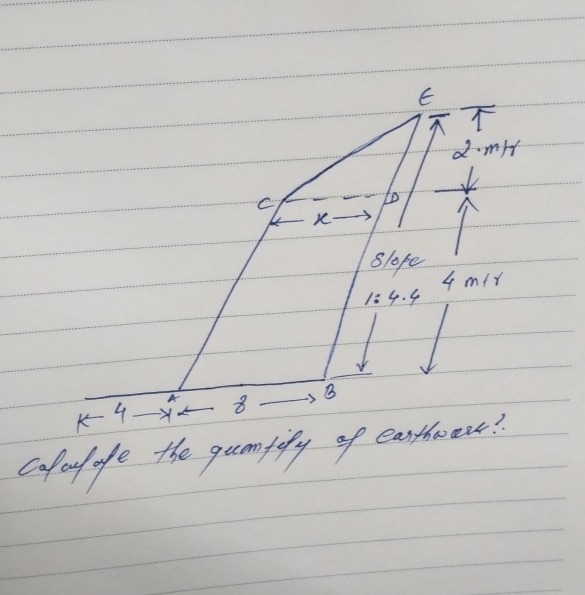 E
2.mtr
C
D
x
Slope
1:4.4
4 mtr
A
B
4
8
Calculate the quantity of earthwork?